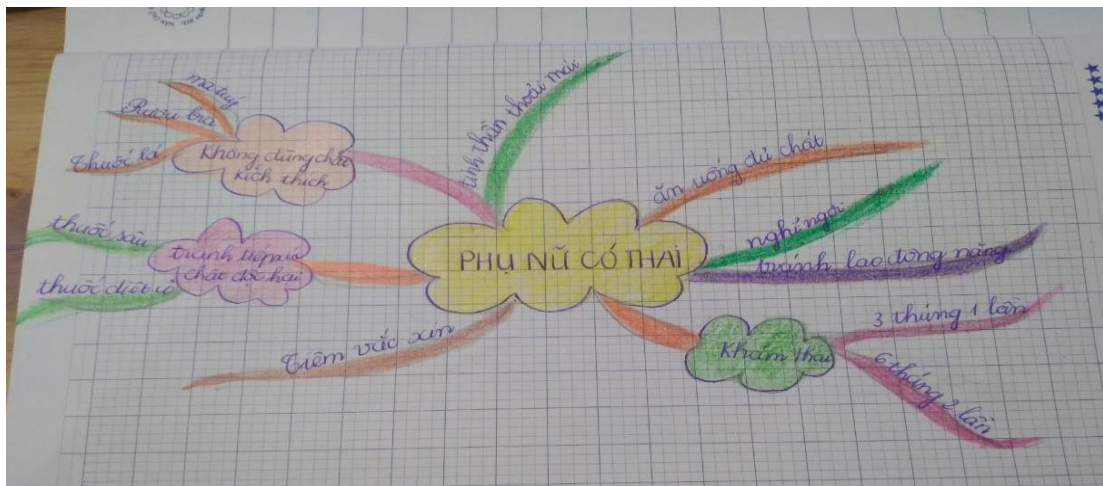 PHỤ NỮ CÓ THAI
tinh thần thoải mái
ăn uống đủ chất
nghỉ ngơi
tránh lao động nặng
Khám thai
3 tháng 1 lần
6 tháng 2 lần
Tiêm vắc xin
tránh tiếp xúc
chất độc hại
thuốc sâu
thuốc diệt cỏ
Không dùng chất
kích thích
ma tuý
Rượu bia
thuốc lá